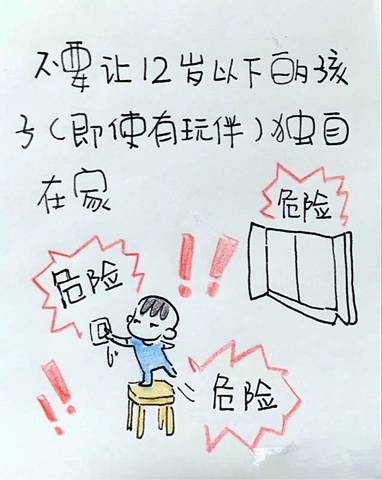 不要让12岁以下的孩
子(即使有玩伴)独自
在家
危险
危险
!!
!!
危险